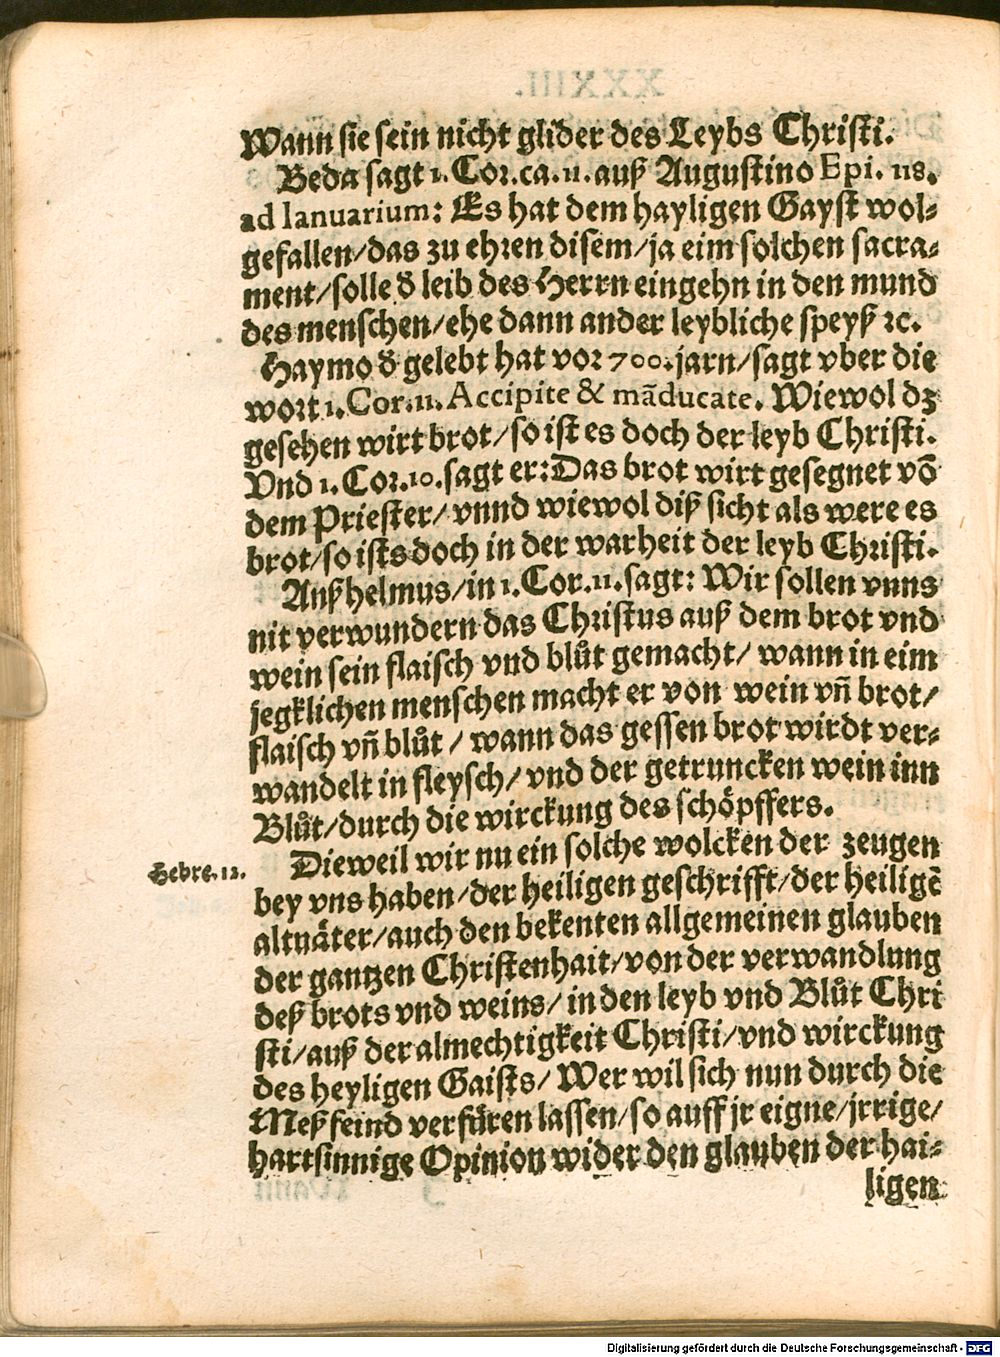 Wann sie sein nicht glider des Leybs Christi.
Beda sagt 1. Cor. ca. 11. auß Augustino Epi. 118.
ad Ianuarium: Es hat dem hayligen Gayst wol-
gefallen/das zu ehren disem/ja eim solchen sacra-
ment/solle d̕ leib des Herrn eingehn in den mund
des menschen/ehe dann ander leybliche speyß ꝛc.
Haymo d̕ gelebt hat vor 700. jarn/sagt vber die
wort 1. Cor. 11. Accipite & mãducate. Wiewol dz
gesehen wirt brot/so ist es doch der leyb Christi.
Vnd 1. Cor. 10. sagt er: Das brot wirt gesegnet võ
dem Priester/vnnd wiewol diß sicht als were es
brot/so ists doch in der warheit der leyb Christi.
Anßhelmus/in 1. Cor. 11. sagt: Wir sollen vnns
nit verwundern das Christus auß dem brot vnd
wein sein flaisch vnd blůt gemacht/ wann in eim
jegklichen menschen macht er von wein vñ brot/
flaisch vñ blůt / wann das gessen brot wirdt ver-
wandelt in fleysch/vnd der getruncken wein inn
Blůt/durch die wirckung des schöpffers.
Dieweil wir nu ein solche wolcken der zeugen
Hebre. 12.
bey vns haben/der heiligen geschrifft/der heiligẽ
altuäter/auch den bekenten allgemeinen glauben
der gantzen Christenhait/von der verwandlung
deß brots vnd weins/in den leyb vnd Blůt Chri
sti/auß der almechtigkeit Christi/vnd wirckung
des heyligen Gaists/Wer wil sich nun durch die
Meß feind verfüren lassen/so auff jr eigne/jrrige/
hartsinnige Opinion wider den glauben der hai-
ligen
Digitalisierung gefördert durch die Deutsche Forschungsgemeinschaft - DFG